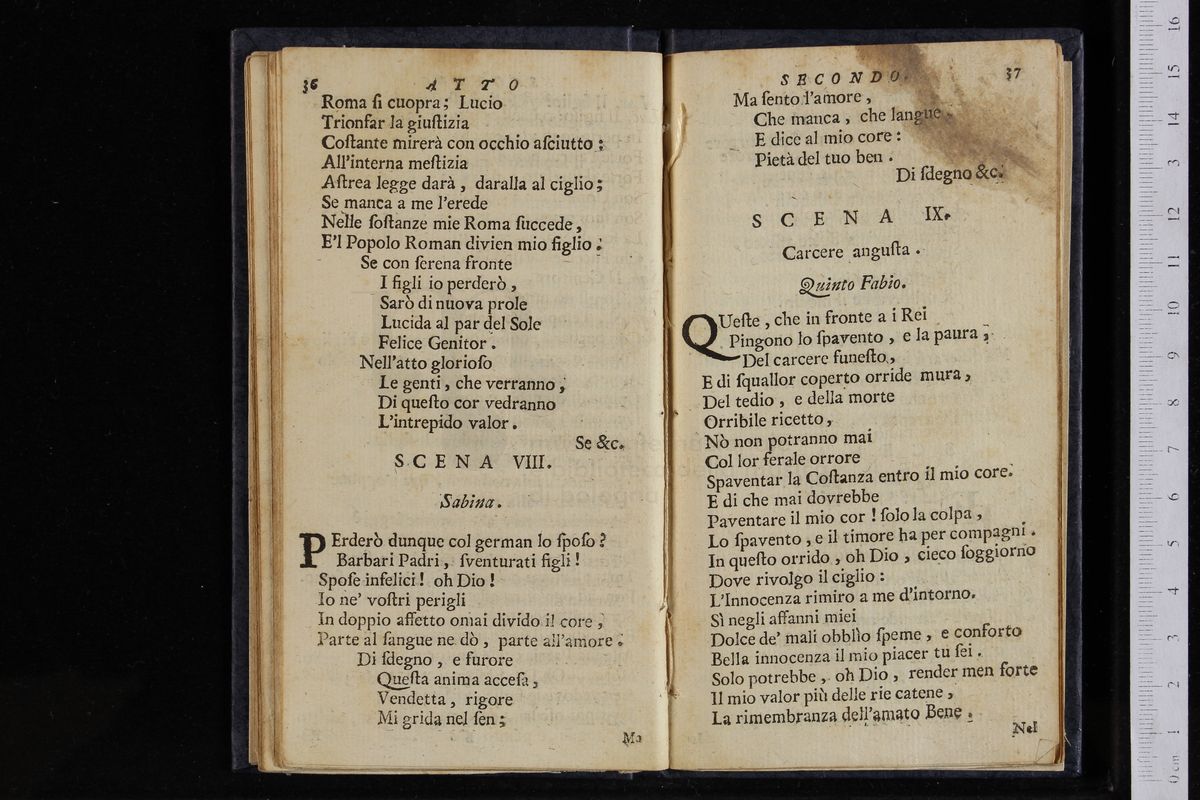 36 ATTO
Roma ſi cuopra; Lucio
Trionfar la giuſtizia
Coſtante mirerà con occhio aſciutto;
All'interna meſtizia
Aſtrea legge darà, daralla al ciglio;
Se manca a me l'erede
Nelle ſoſtanze mie Roma ſuccede,
E'l Popolo Roman divien mio figlio.
Se con ſerena fronte
I figli io perderò,
Sarò di nuova prole
Lucida al par del Sole
Felice Genitor.
Nell'atto glorioſo
Le genti, che verranno,
Di queſto cor vedranno
L'intrepido valor.
Se &c.
SCENA VIII.
Sabina.
PErderò dunque col german lo ſpoſo?
Barbari Padri, ſventurati figli!
Spoſe infelici! oh Dio!
Io ne' voſtri perigli
In doppio affetto omai divido il core,
Parte al ſangue ne dò, parte all'amore.
Di ſdegno, e furore
Queſta anima acceſa,
Vendetta, rigore
Mi grida nel ſen;
Ma
SECONDO. 37
Ma ſento l'amore,
Che manca, che langue,
E dice al mio core:
Pietà del tuo ben.
Di ſdegno &c.
SCENA IX.
Carcere anguſta.
Quinto Fabio.
QUeſte, che in fronte a i Rei
Pingono lo ſpavento, e la paura,
Del carcere funeſto,
E di ſquallor coperto orride mura,
Del tedio, e della morte
Orribile ricetto,
Nò non potranno mai
Col lor ferale orrore
Spaventar la Coſtanza entro il mio core.
E di che mai dovrebbe
Paventare il mio cor! ſolo la colpa,
Lo ſpavento, e il timore ha per compagni.
In queſto orrido, oh Dio, cieco ſoggiorno
Dove rivolgo il ciglio:
L'Innocenza rimiro a me d'intorno.
Sì negli affanni miei
Dolce de' mali obblìo ſpeme, e conforto
Bella innocenza il mio piacer tu ſei.
Solo potrebbe, oh Dio, render men forte
Il mio valor più delle rie catene,
La rimembranza dell'amato Bene.
Nel
0 cm 1 2 3 4 5 6 7 8 9 10 11 12 13 14 15 16